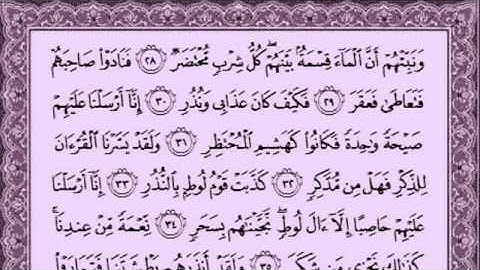 وَنَبِّئْهُمْ أَنَّ الْمَاءَ قِسْمَةٌ بَيْنَهُمْ كُلُّ شِرْبٍ مُحْتَضَرٌ ﴿٢٨﴾ فَنَادَوْا صَاحِبَهُمْ
فَتَعَاطَىٰ فَعَقَرَ ﴿٢٩﴾ فَكَيْفَ كَانَ عَذَابِي وَنُذُرِ ﴿٣٠﴾ إِنَّا أَرْسَلْنَا عَلَيْهِمْ
صَيْحَةً وَاحِدَةً فَكَانُوا كَهَشِيمِ الْمُحْتَظِرِ ﴿٣١﴾ وَلَقَدْ يَسَّرْنَا الْقُرْءَانَ
لِلذِّكْرِ فَهَلْ مِن مُّدَّكِرٍ ﴿٣٢﴾ كَذَّبَتْ قَوْمُ لُوطٍ بِالنُّذُرِ ﴿٣٣﴾ إِنَّا أَرْسَلْنَا
عَلَيْهِمْ حَاصِبًا إِلَّا ءَالَ لُوطٍ نَّجَّيْنَاهُم بِسَحَرٍ ﴿٣٤﴾ نِعْمَةً مِّنْ عِندِنَا
كَذَٰلِكَ نَجْزِي مَن شَكَرَ ﴿٣٥﴾ وَلَقَدْ أَنذَرَهُم بَطْشَتَنَا فَتَمَارَوْا